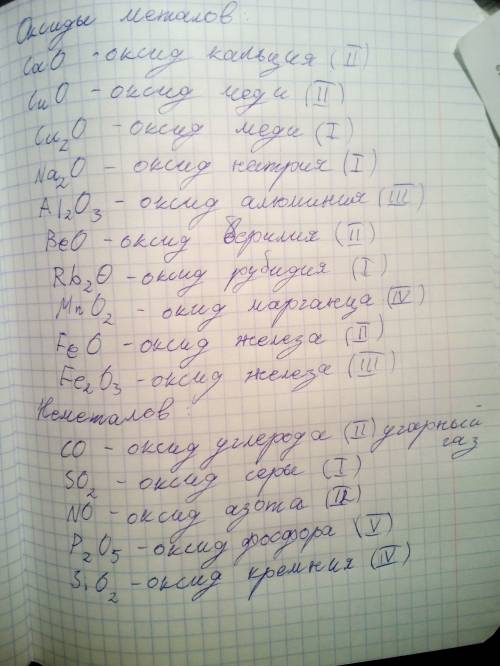 Оксиды металов:
CaO - оксид кальция (II)
CuO - оксид меди (II)
Cu2O - оксид меди (I)
Na2O - оксид натрия (I)
Al2O3 - оксид алюминия (III)
BeO - оксид берилия (II)
Rb2O - оксид рубидия (I)
MnO2 - оксид марганца (IV)
FeO - оксид железа (II)
Fe2O3 - оксид железа (III)
Неметалов:
CO - оксид углерода (II) угарный
газ
SO2 - оксид серы (I)
NO - оксид азота (II)
P2O5 - оксид фосфора (V)
SiO2 - оксид кремния (IV)